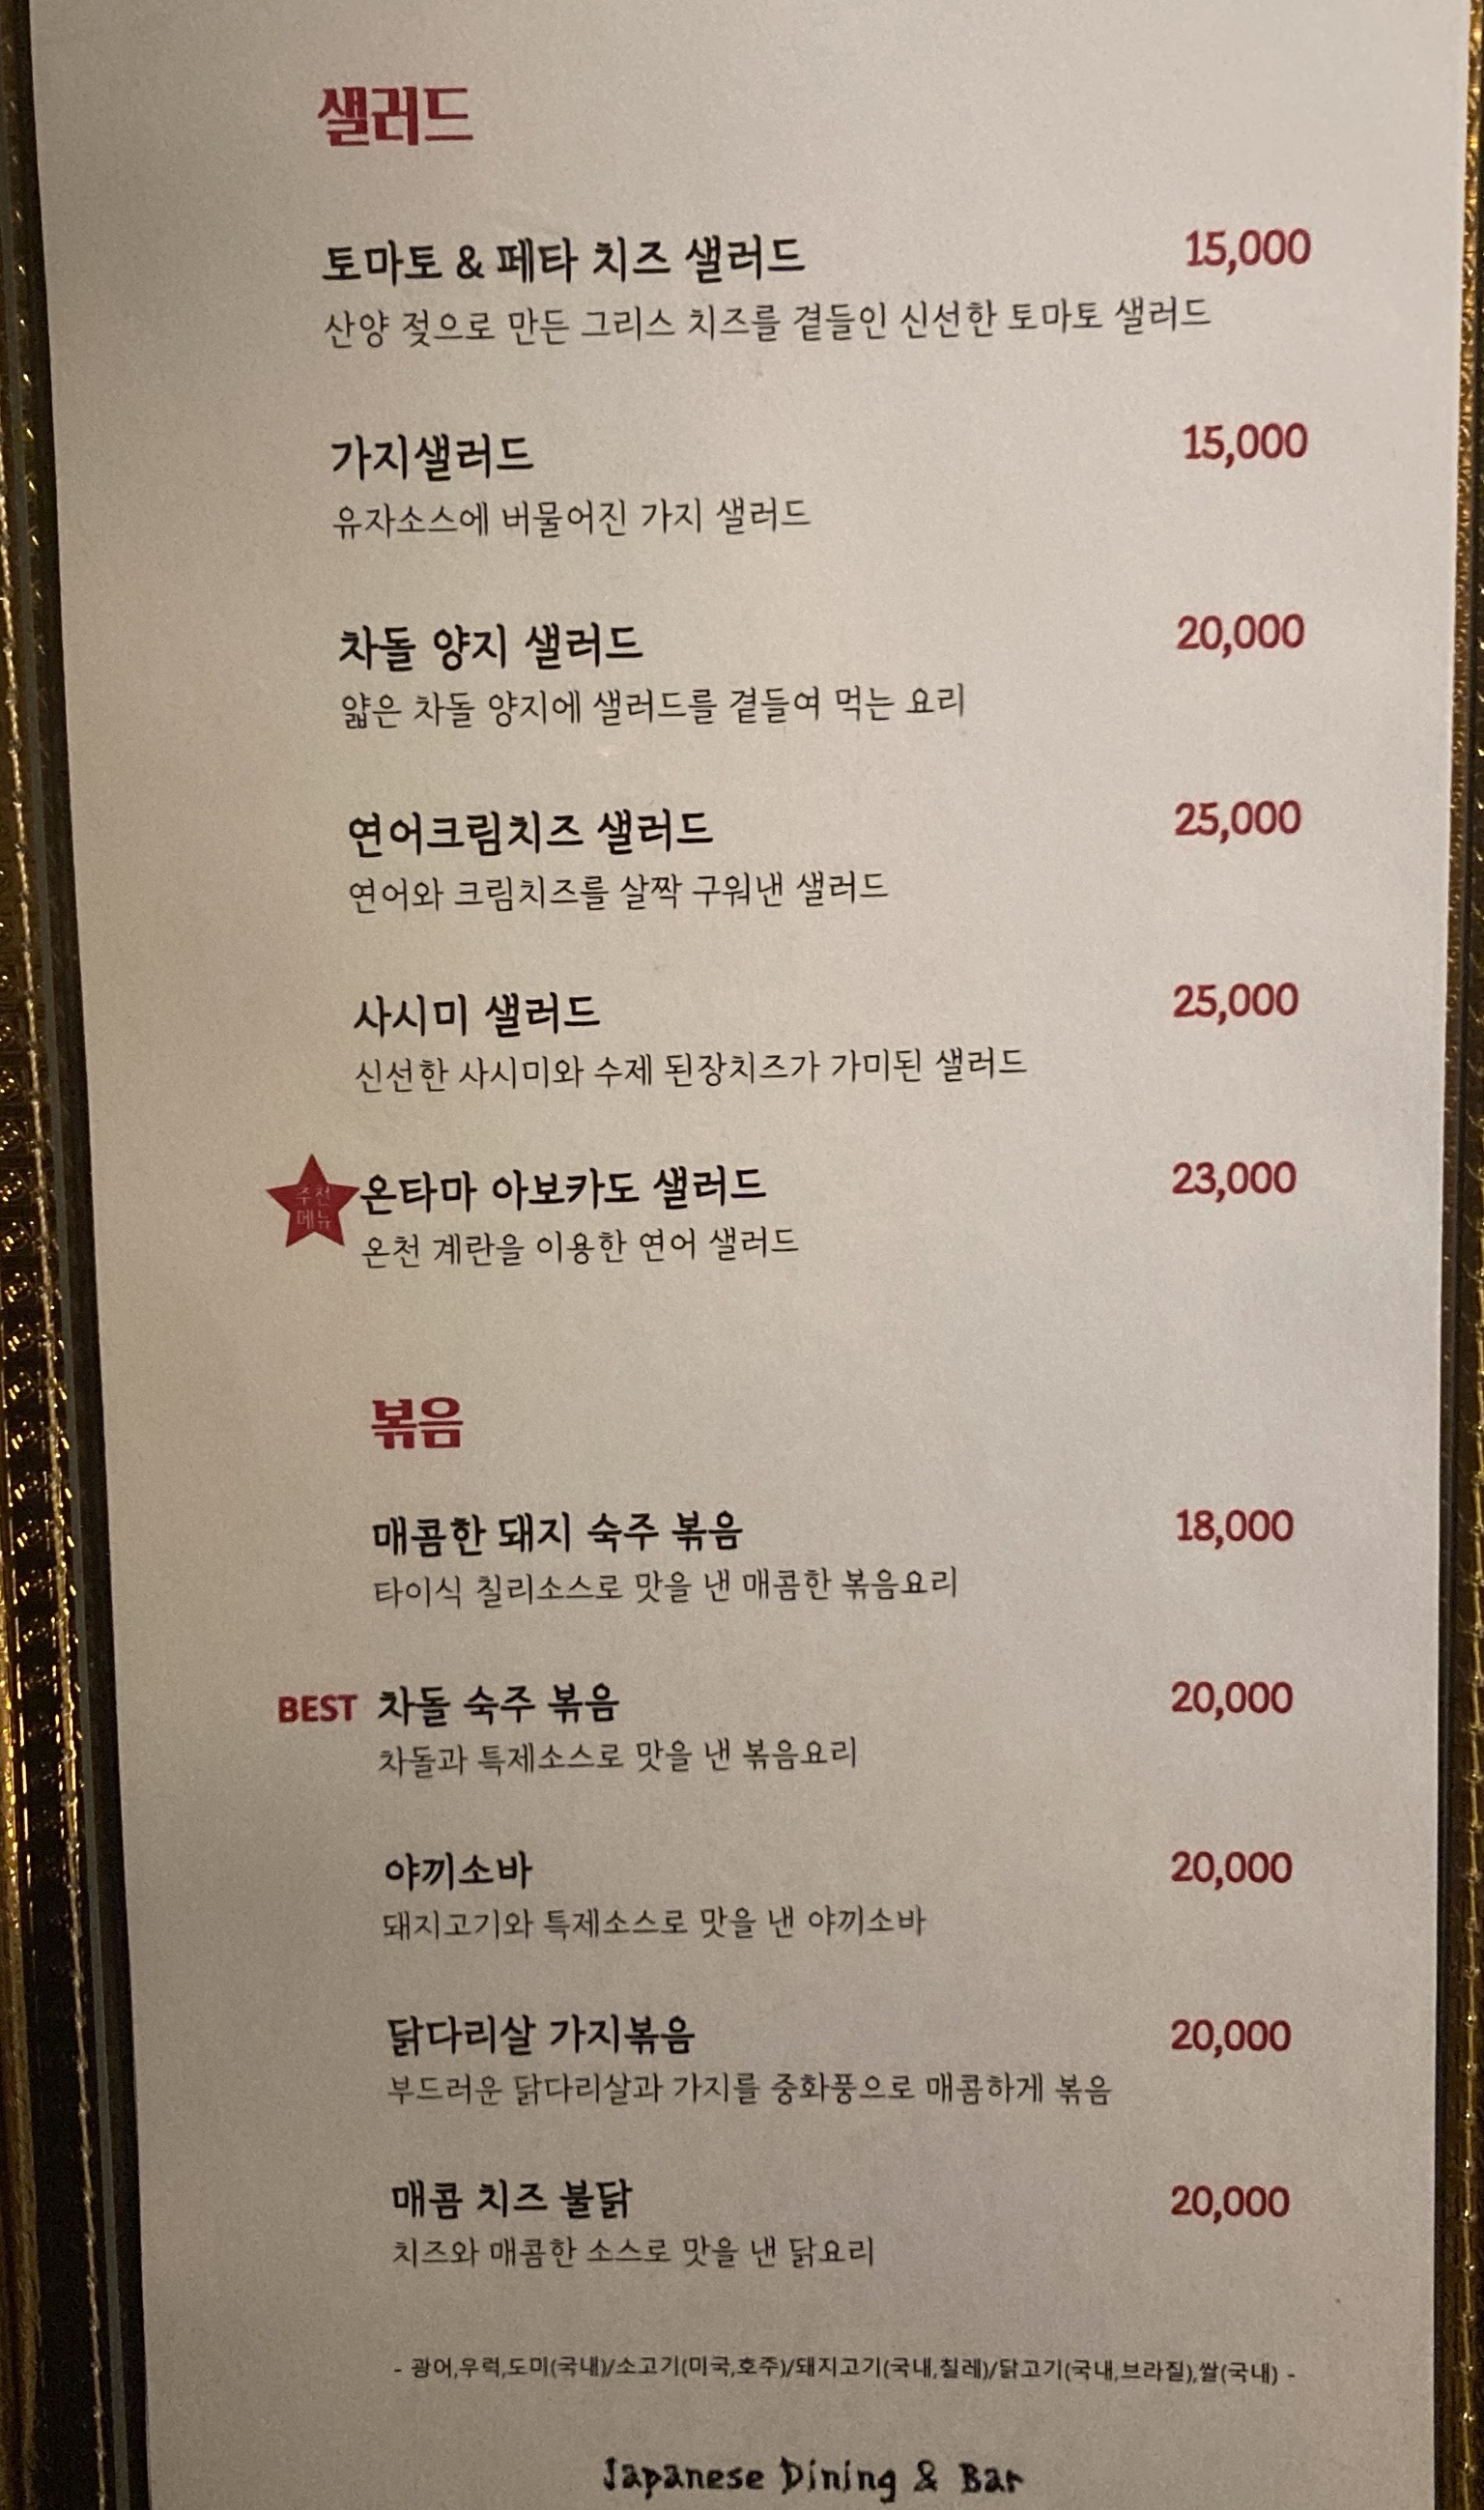 샐러드
토마토 & 페타 치즈 샐러드 15,000
산양 젖으로 만든 그리스 치즈를 곁들인 신선한 토마토 샐러드
가지샐러드 15,000
유자소스에 버물어진 가지 샐러드
차돌 양지 샐러드 20,000
얇은 차돌 양지에 샐러드를 곁들여 먹는 요리
연어크림치즈 샐러드 25,000
연어와 크림치즈를 살짝 구워낸 샐러드
사시미 샐러드 25,000
신선한 사시미와 수제 된장치즈가 가미된 샐러드
추천
메뉴
온타마 아보카도 샐러드 23,000
온천 계란을 이용한 연어 샐러드
볶음
매콤한 돼지 숙주 볶음 18,000
타이식 칠리소스로 맛을 낸 매콤한 볶음요리
BEST 차돌 숙주 볶음 20,000
차돌과 특제소스로 맛을 낸 볶음요리
야끼소바 20,000
돼지고기와 특제소스로 맛을 낸 야끼소바
닭다리살 가지볶음 20,000
부드러운 닭다리살과 가지를 중화풍으로 매콤하게 볶음
매콤 치즈 불닭 20,000
치즈와 매콤한 소스로 맛을 낸 닭요리
- 광어,우럭,도미(국내)/소고기(미국,호주)/돼지고기(국내,칠레)/닭고기(국내,브라질),쌀(국내) -
Japanese Dining & Bar